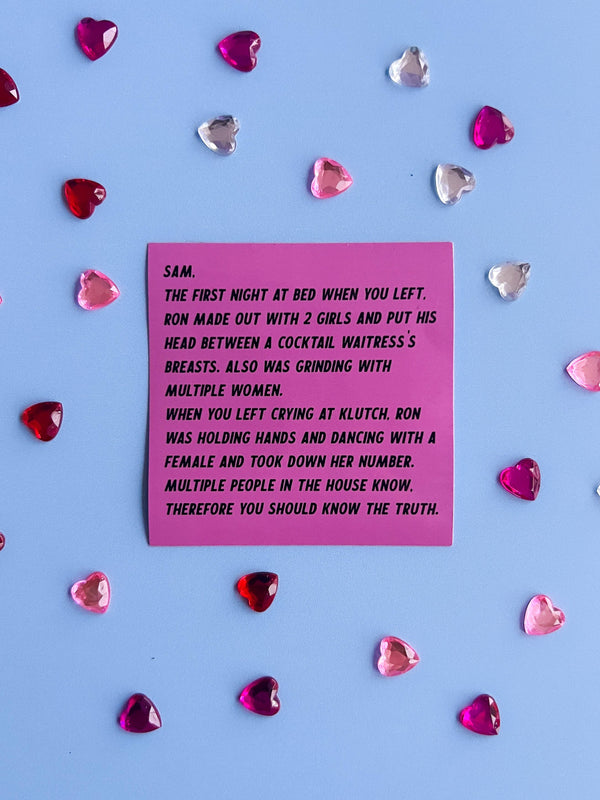 SAM,
THE FIRST NIGHT AT BED WHEN YOU LEFT,
RON MADE OUT WITH 2 GIRLS AND PUT HIS
HEAD BETWEEN A COCKTAIL WAITRESS'S
BREASTS. ALSO WAS GRINDING WITH
MULTIPLE WOMEN.
WHEN YOU LEFT CRYING AT KLUTCH, RON
WAS HOLDING HANDS AND DANCING WITH A
FEMALE AND TOOK DOWN HER NUMBER.
MULTIPLE PEOPLE IN THE HOUSE KNOW,
THEREFORE YOU SHOULD KNOW THE TRUTH.